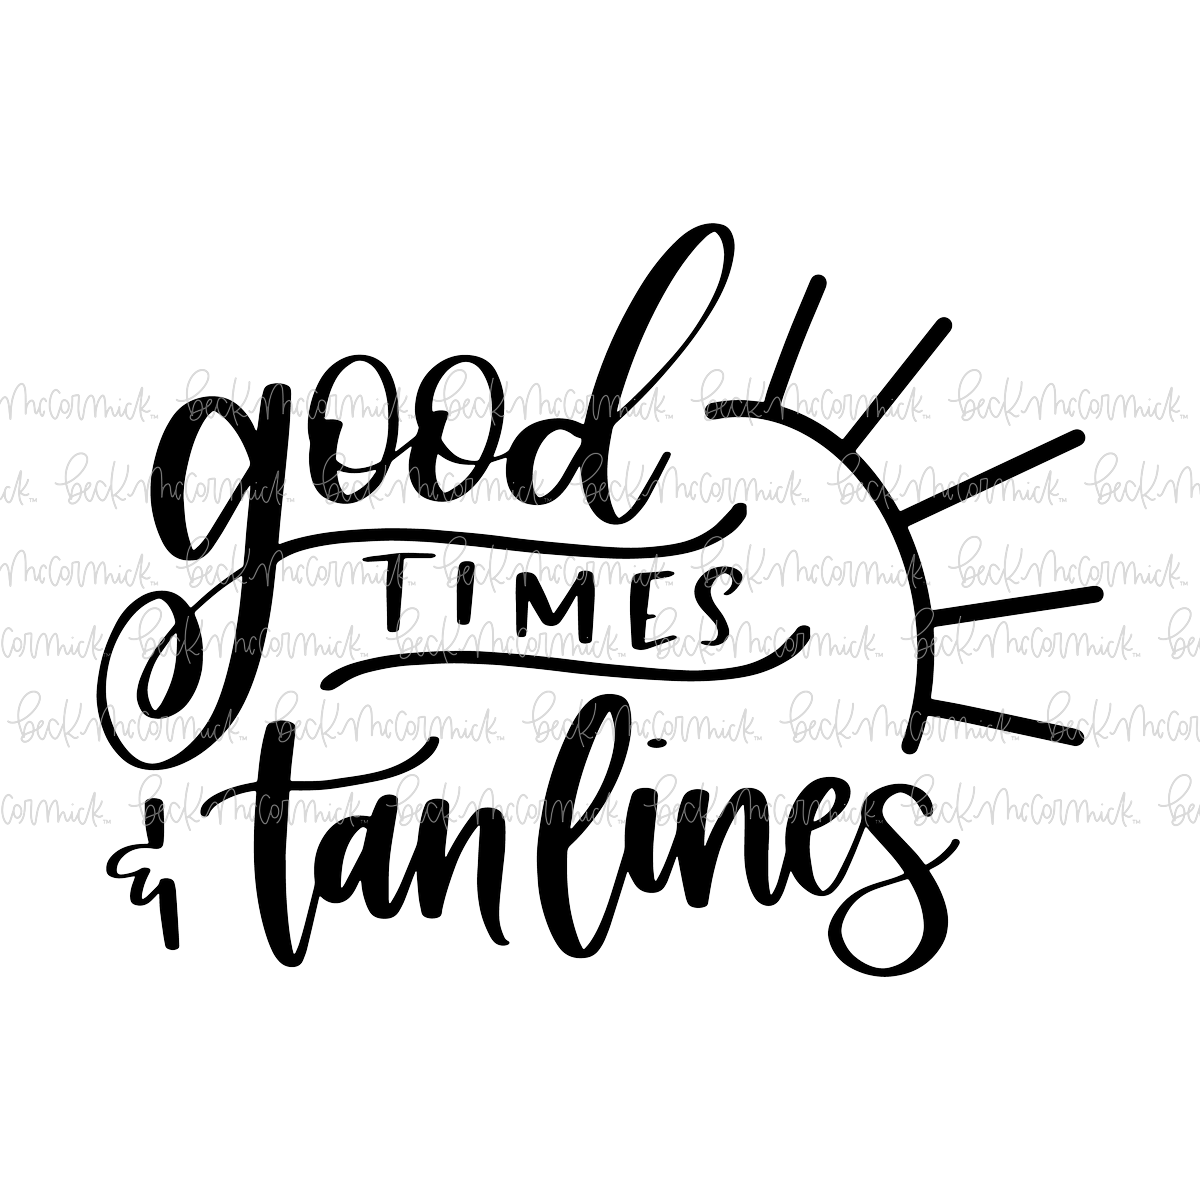 good
TIMES
& tan lines
beck McCormick™